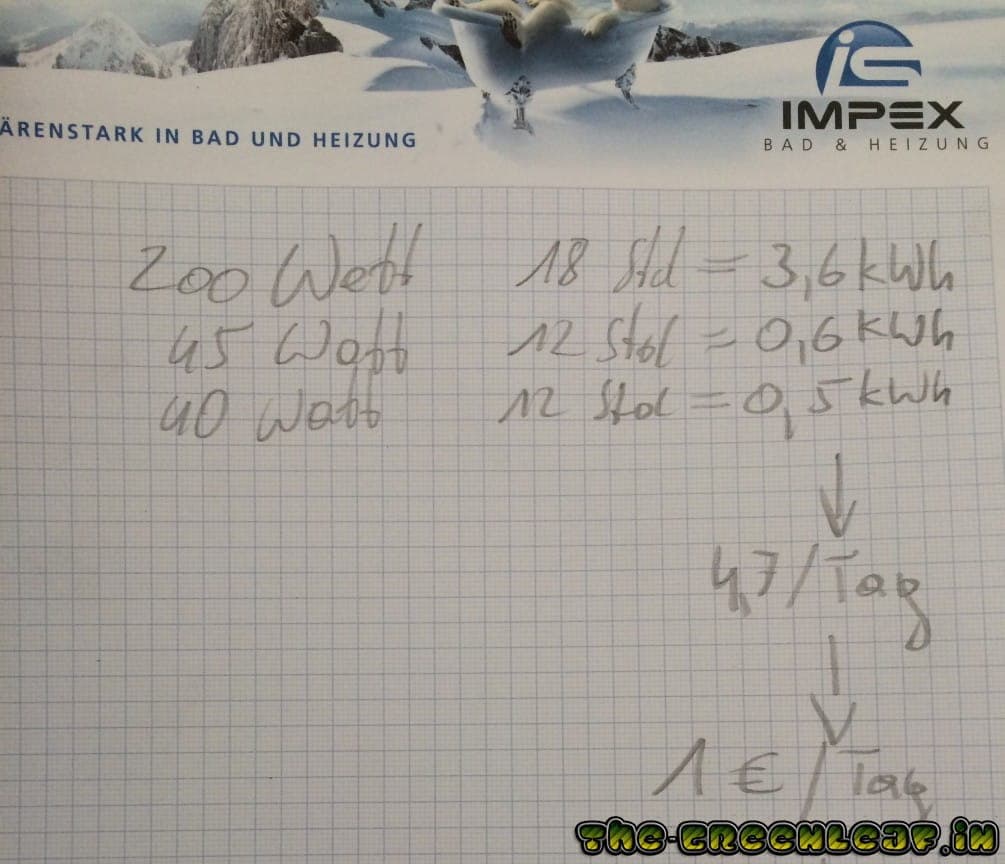 ÄRENSTARK IN BAD UND HEIZUNG
IMPEX
BAD & HEIZUNG
200 Watt 18 Std = 3,6 kWh
45 Watt 12 Std = 0,6 kWh
40 Watt 12 Std = 0,5 kWh
4,7/Tag
1 € / Tag
THC-GREENLEAF.IN